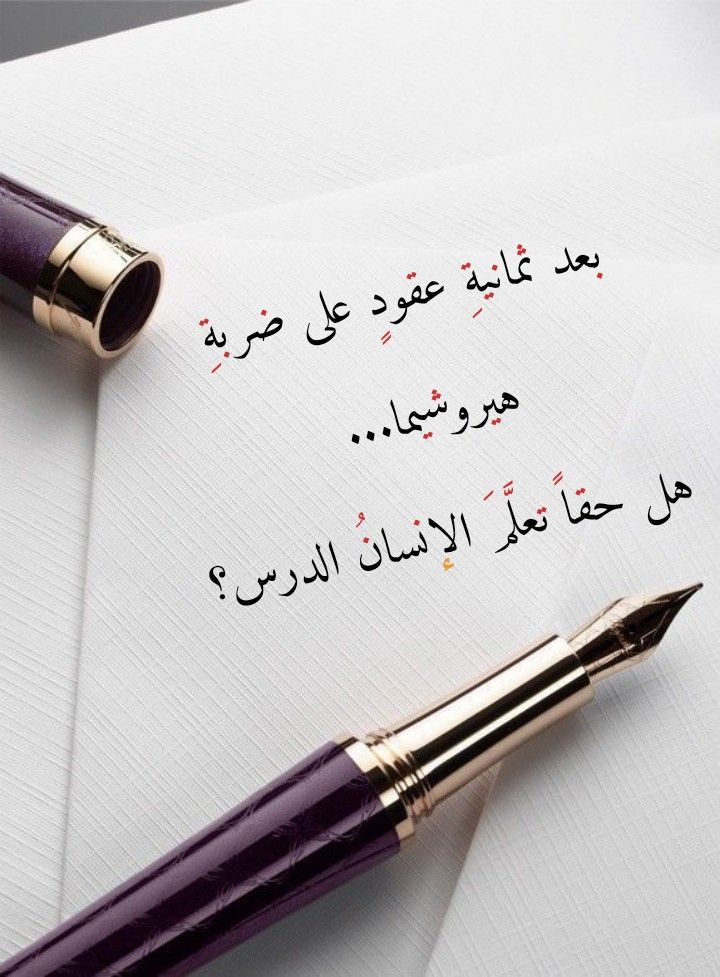 بعد ثمانيةِ عقودٍ على ضربةِ
هيروشيما...
هل حقاً تعلَّمَ الإنسانُ الدرس؟